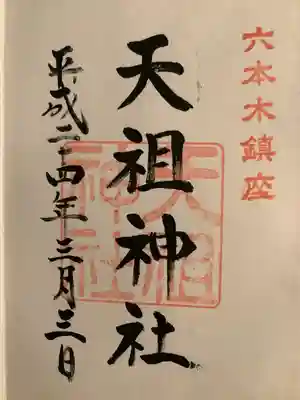 六本木鎮座
天祖神社
平成二十四年三月三日
天祖
神社